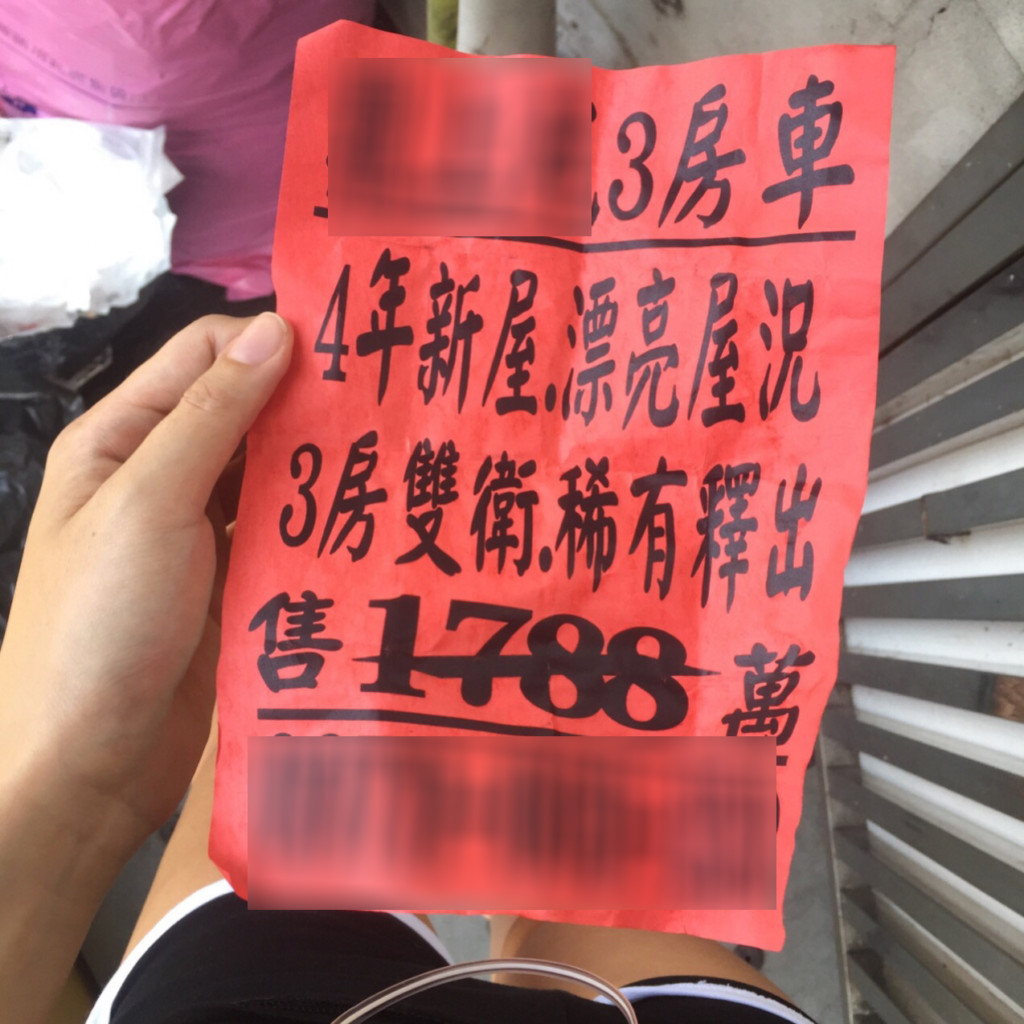 3房車
4年新屋.漂亮屋況
3房雙衛.稀有釋出
售1788萬